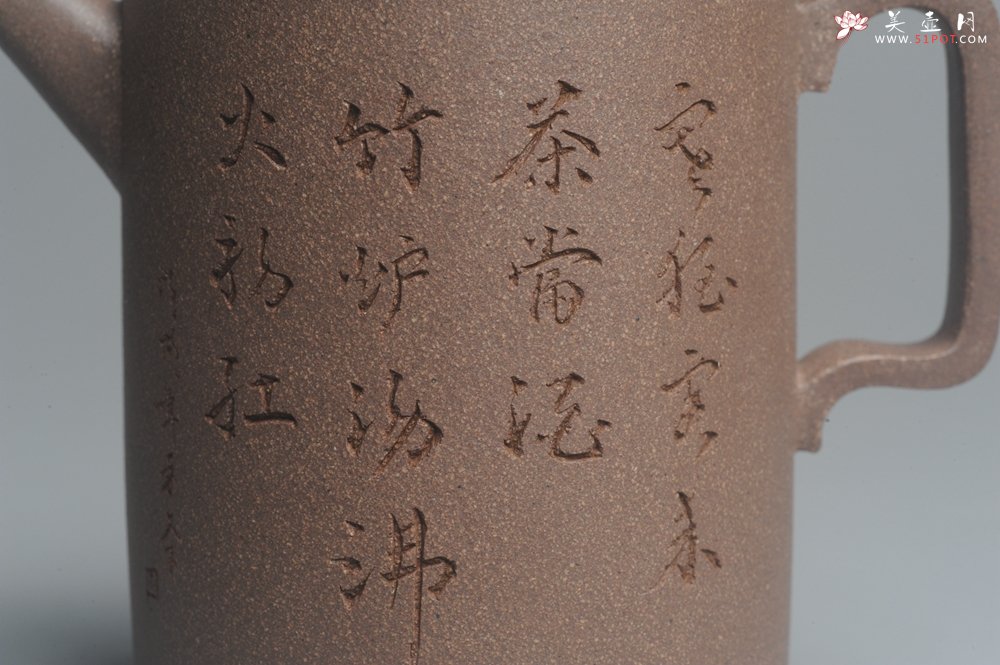 寒夜客来
茶当酒
竹炉汤沸
火初红
美壶月
WWW.51POT.COM